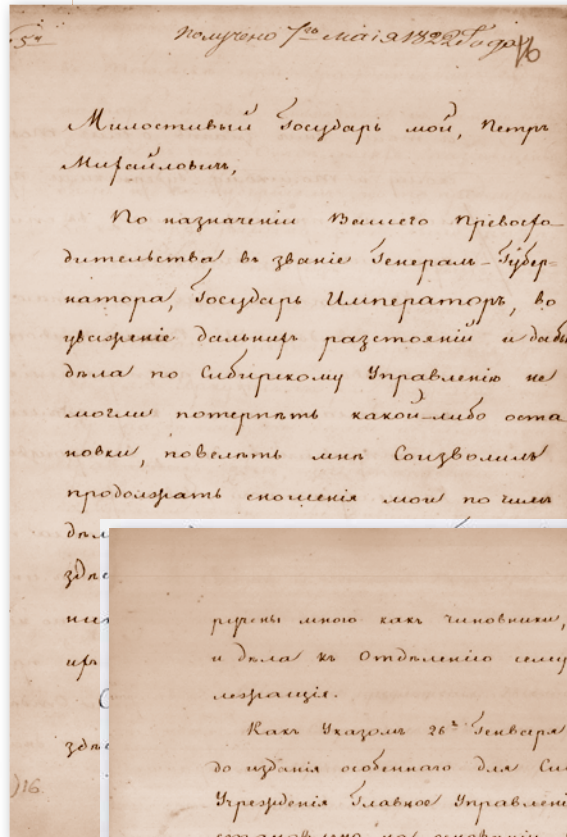 Получено 7го маія 1822 Года
Милостивый Государь мой, Петръ
Михайловичъ,
По назначеніи Вашего Превосхо-
дительства въ званіе Генералъ-Губер-
натора, Государь Императоръ, во
уваженіе дальнихъ разстояній и дабы
дѣла по Сибирскому Управленію не
могли потерпѣть какой-либо оста
новки, повелѣть мнѣ Соизволилъ
продолжать сношенія мои по симъ
дѣл
здѣс
ни
ихъ
здѣс
)16
ручены мною какъ чиновники,
и дѣла къ Отдѣленію сему
лежащіе.
Какъ Указомъ 26го Генваря
до изданія особеннаго для Си
Учрежденія Главное Управлені